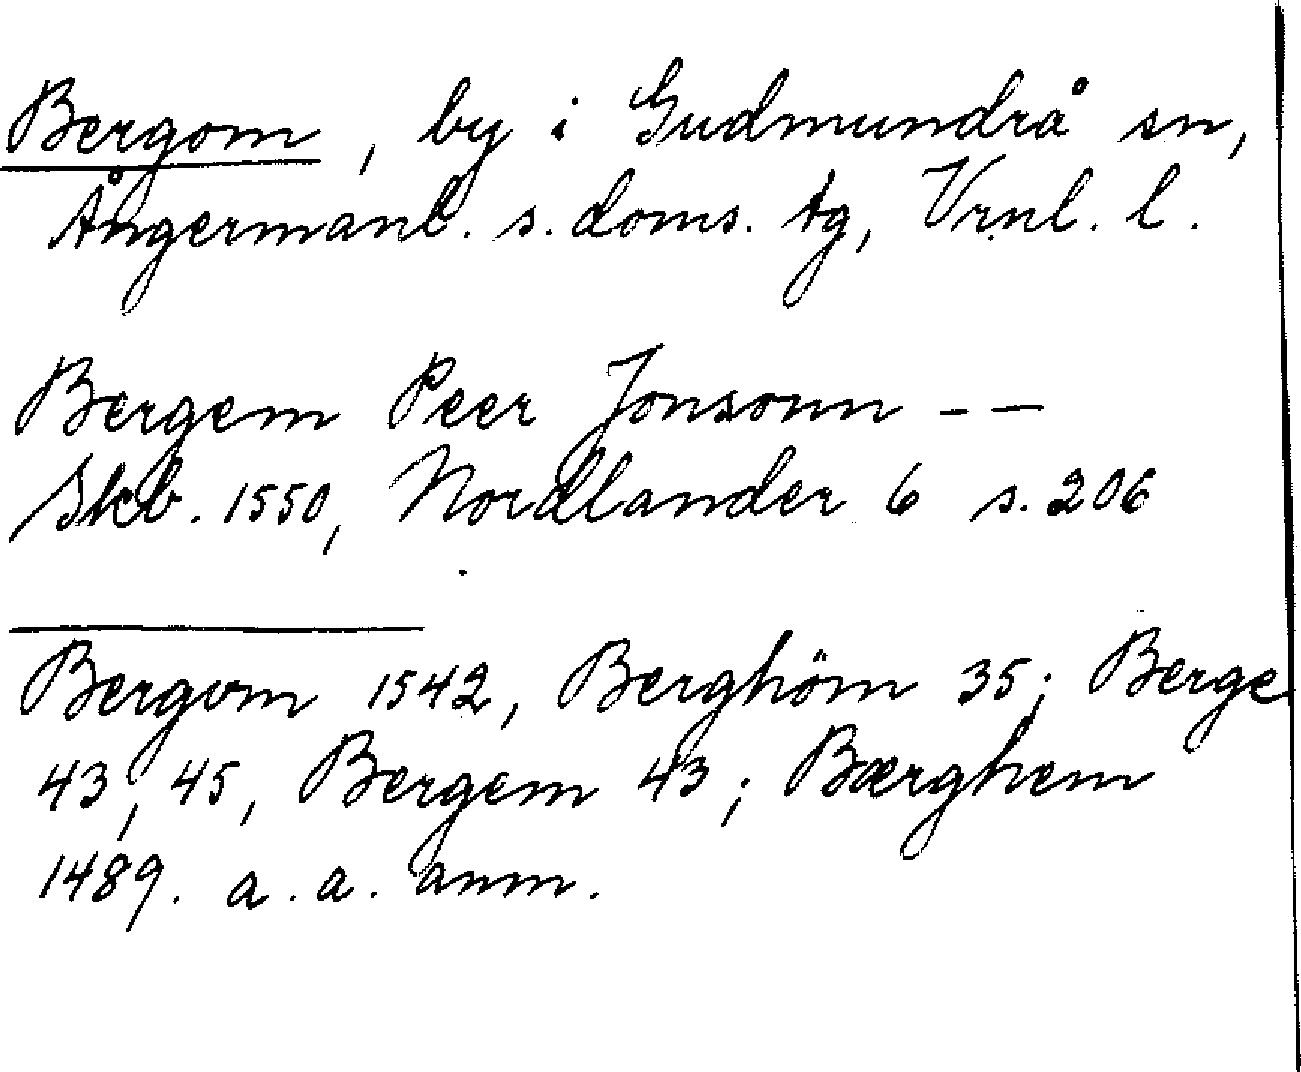 Bergom, by i Gudmundrå sn,
Ångermanl. s. doms. tg, Vrnl. l.
Bergem Peer Jonsonn - -
Skb. 1550, Nordlander 6 s. 206
Bergom 1542, Berghöm 35; Berge
43, 45, Bergem 43; Bærghem
1489. a. a. anm.